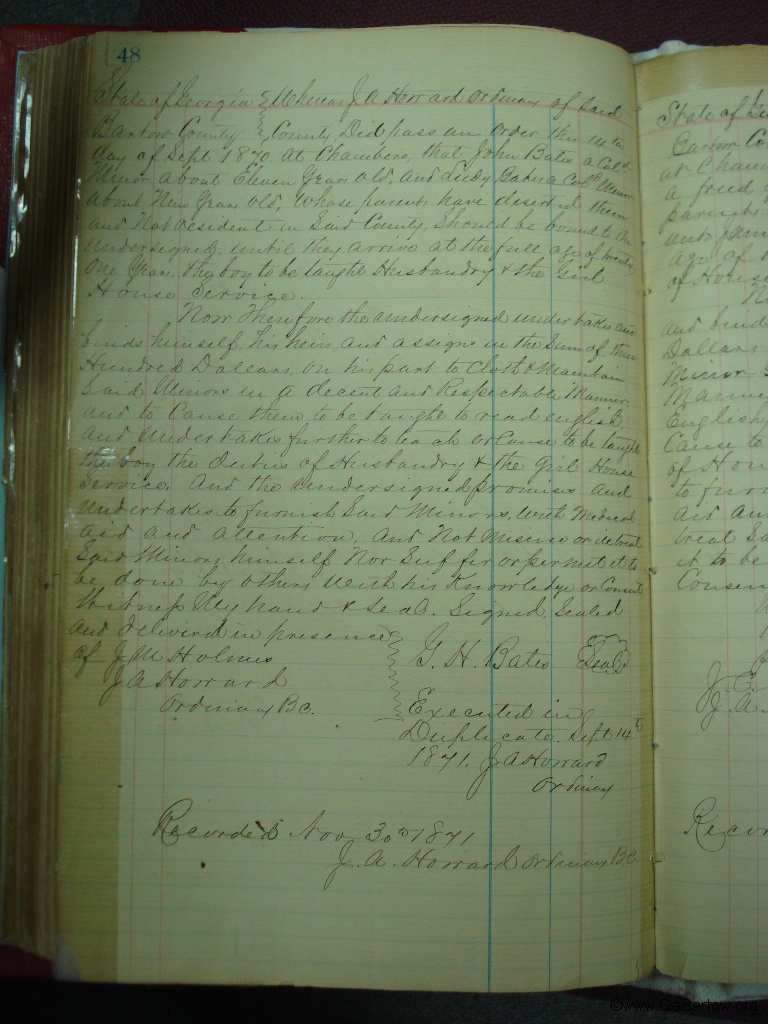 48
State of Georgia } Whereas J. A. Howard Ordinary of Said
Bartow County } County Did pass an Order this 14th
day of Sept 1870. At Chambers, that John Bates a Cold
Minor about Eleven Years old, and Bates a Cold Minor
about Nine Years old, whose parents have deserted them
and Not resident in Said County, Should be bound to the
undersigned, until they arrive at the full age of twenty
One Years, the boy to be taught Husbandry & the Girl
House Service.
Now Therefore the undersigned undertakes and
binds himself, his heirs and assigns in the Sum of three
Hundred Dollars, on his part to Cloth & Maintain
Said Minors in a decent and Respectable Manner
and to Cause them to be taught to read english
and undertakes further to teach or Cause to be taught
the boy the duties of Husbandry & the Girl House
Service. And the undersigned promises and
undertakes to furnish Said Minors, with Medical
aid and attention, and Not Misuse or
Said Minors himself Nor Suffer or permit it to
be done by others with his Knowledge or Consent
Witness My hand & Seal. Signed, Sealed
and delivered in presence
of J. M. Holmes
J A Howard
Ordinary B.C.
G. H. Bates Seal
Executed in
Duplicate. Sept 14th
1871. J A Howard
Ordinary
Recorded Nov 30th 1871
J. A. Howard Ordinary BC
State of
Bartow Co
at Cham
a freed
parents
unto
age of
of House
and bind
Dollars
Minor
Manner
English
Cause to
of Hou
to furn
aid an
treat Sa
it to be
Consen
J.
J. A.
Recor
©www.GaBartow.org